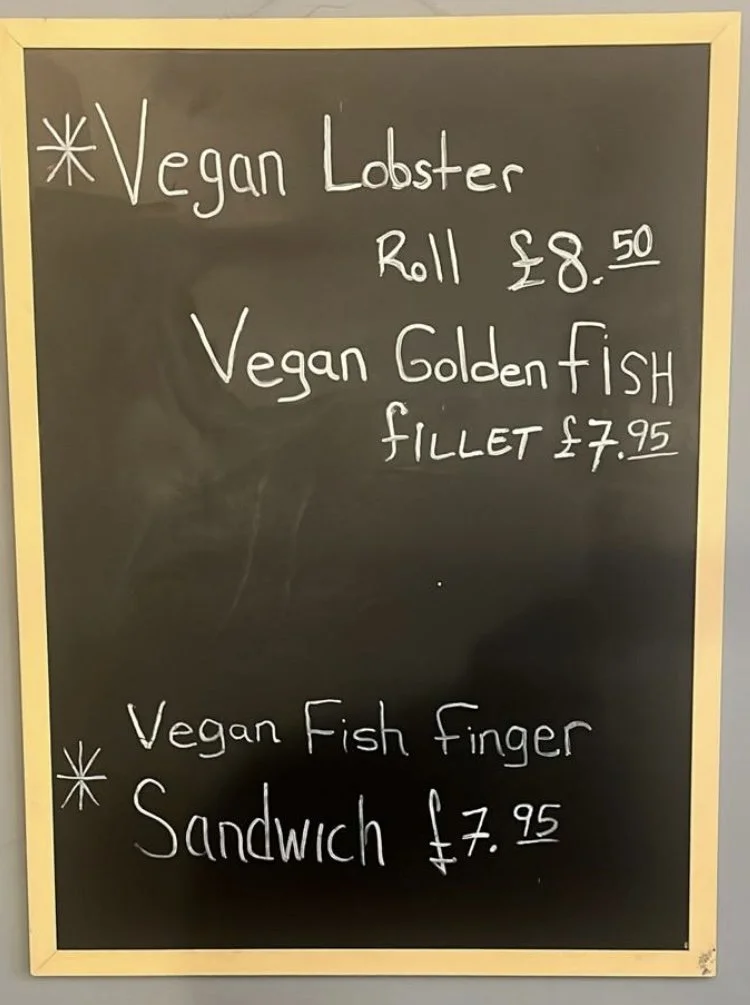 *Vegan Lobster
Roll £8.50
Vegan Golden fiSH
fiLLET £7.95
Vegan Fish Finger
* Sandwich £7.95